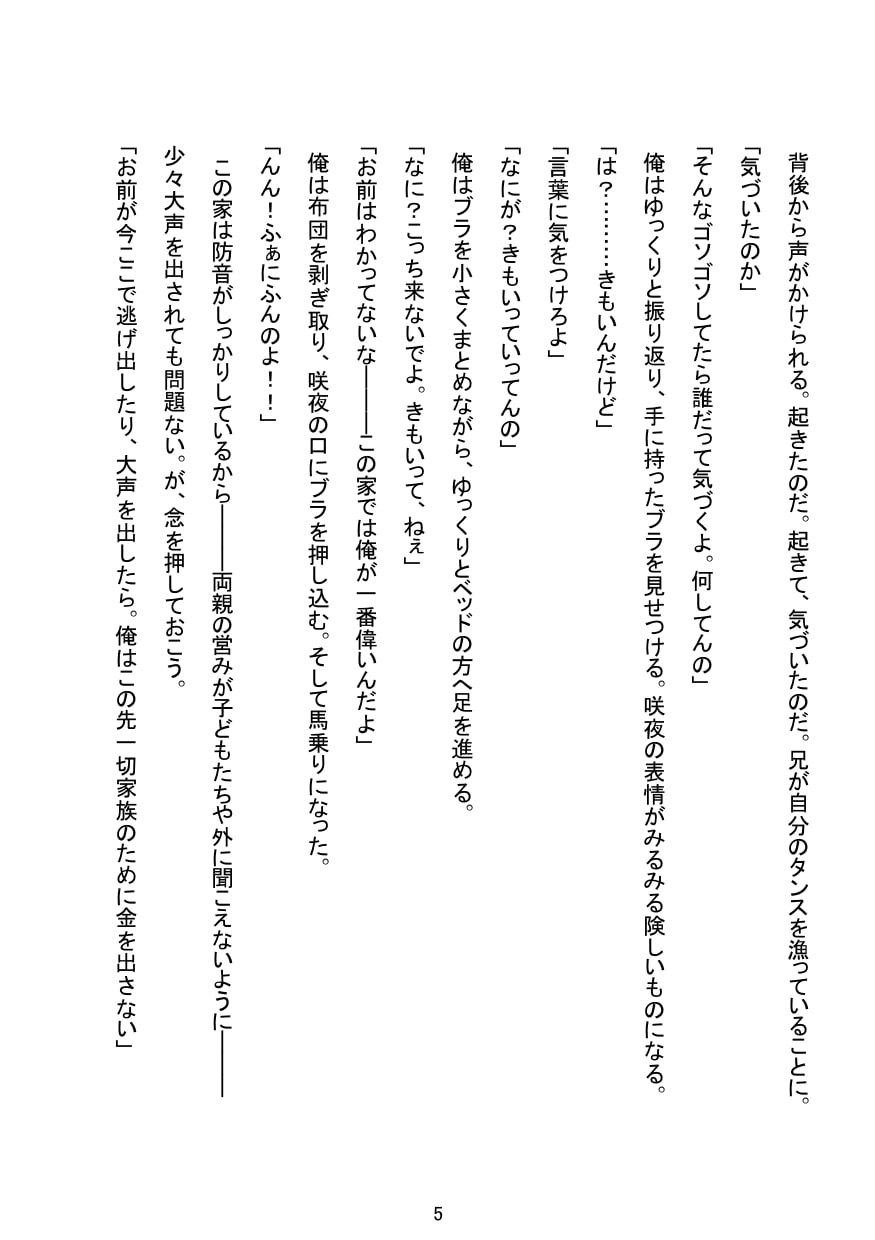 背後から声がかけられる。起きたのだ。起きて、気づいたのだ。兄が自分のタンスを漁っていることに。
「気づいたのか」
「そんなゴソゴソしてたら誰だって気づくよ。何してんの」
俺はゆっくりと振り返り、手に持ったブラを見せつける。咲夜の表情がみるみる険しいものになる。
「は？………きもいんだけど」
「言葉に気をつけろよ」
「なにが？きもいっていってんの」
俺はブラを小さくまとめながら、ゆっくりとベッドの方へ足を進める。
「なに？こっち来ないでよ。きもいって、ねぇ」
「お前はわかってないな―――この家では俺が一番偉いんだよ」
俺は布団を剥ぎ取り、咲夜の口にブラを押し込む。そして馬乗りになった。
「んん！ふぁにふんのよ！！」
この家は防音がしっかりしているから―――両親の営みが子どもたちや外に聞こえないように―――
少々大声を出されても問題ない。が、念を押しておこう。
「お前が今ここで逃げ出したり、大声を出したら。俺はこの先一切家族のために金を出さない」
5